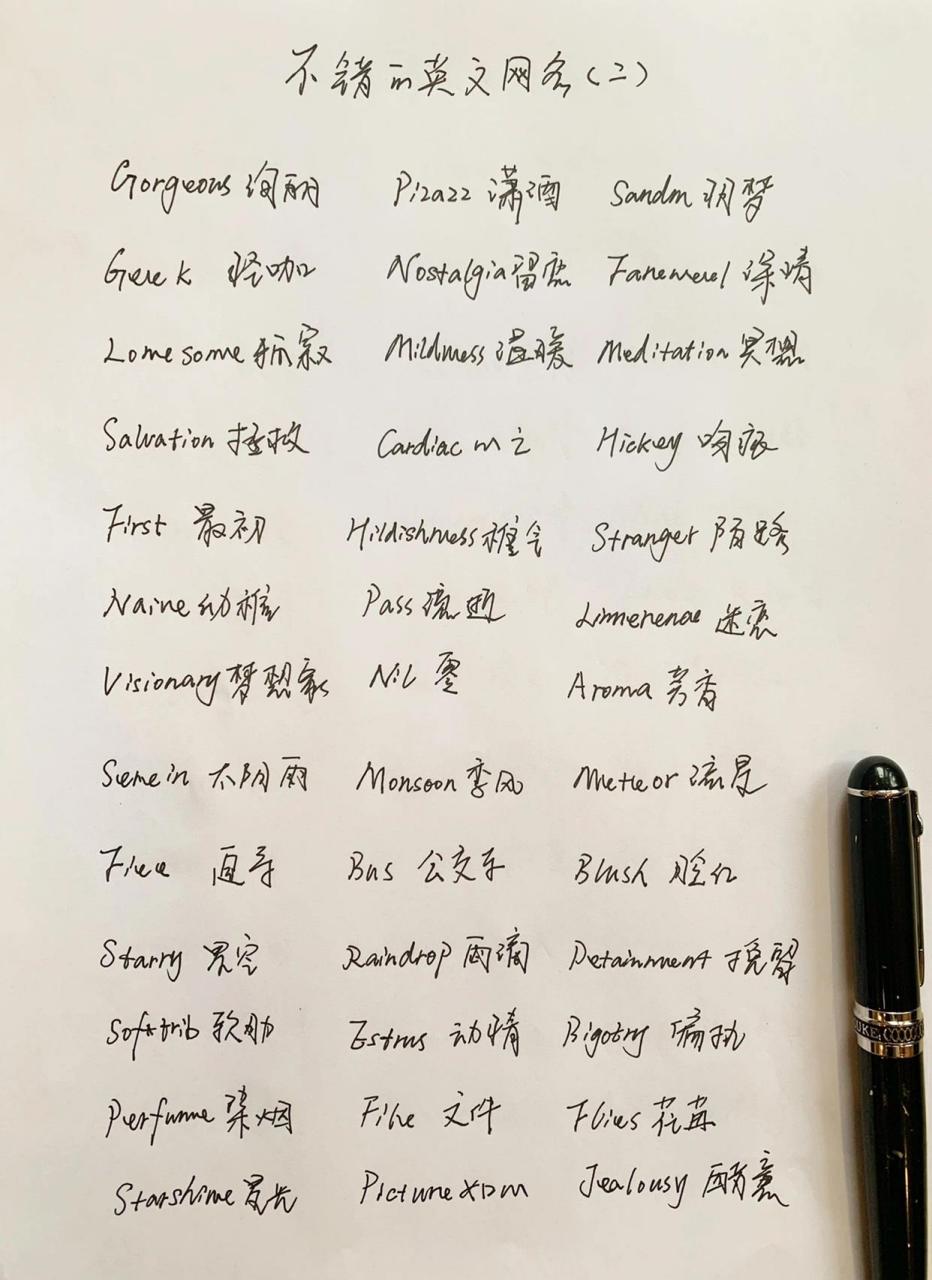 不错的英文网名(二)
Gorgeous 绚丽 Pizazz 潇洒 Sandm 羽梦
Geek 怪咖 Nostalgia 留恋 Fanemerel 深情
Lomesome 孤寂 Mildmess 温暖 Meditation 冥想
Salvation 拯救 Cardiac 心上 Hickey 吻痕
First 最初 Hildishmess 稚气 Stranger 陌路
Naine 幼稚 Pass 流逝 Limerenae 迷恋
Visionary 梦想家 Nil 零 Aroma 芳香
Semein 太阴雨 Monsoon 季风 Meteor 流星
直率 Bus 公交车 Blush 脸红
Starry 星空 Raindrop 雨滴 Detainment 挽留
Softrib 软肋 Estrus 动情 Bigotry 偏执
Perfume 染烟 File 文件 Flies 花苒
Starshime 星光 Picture Jealousy 醋意
UKE